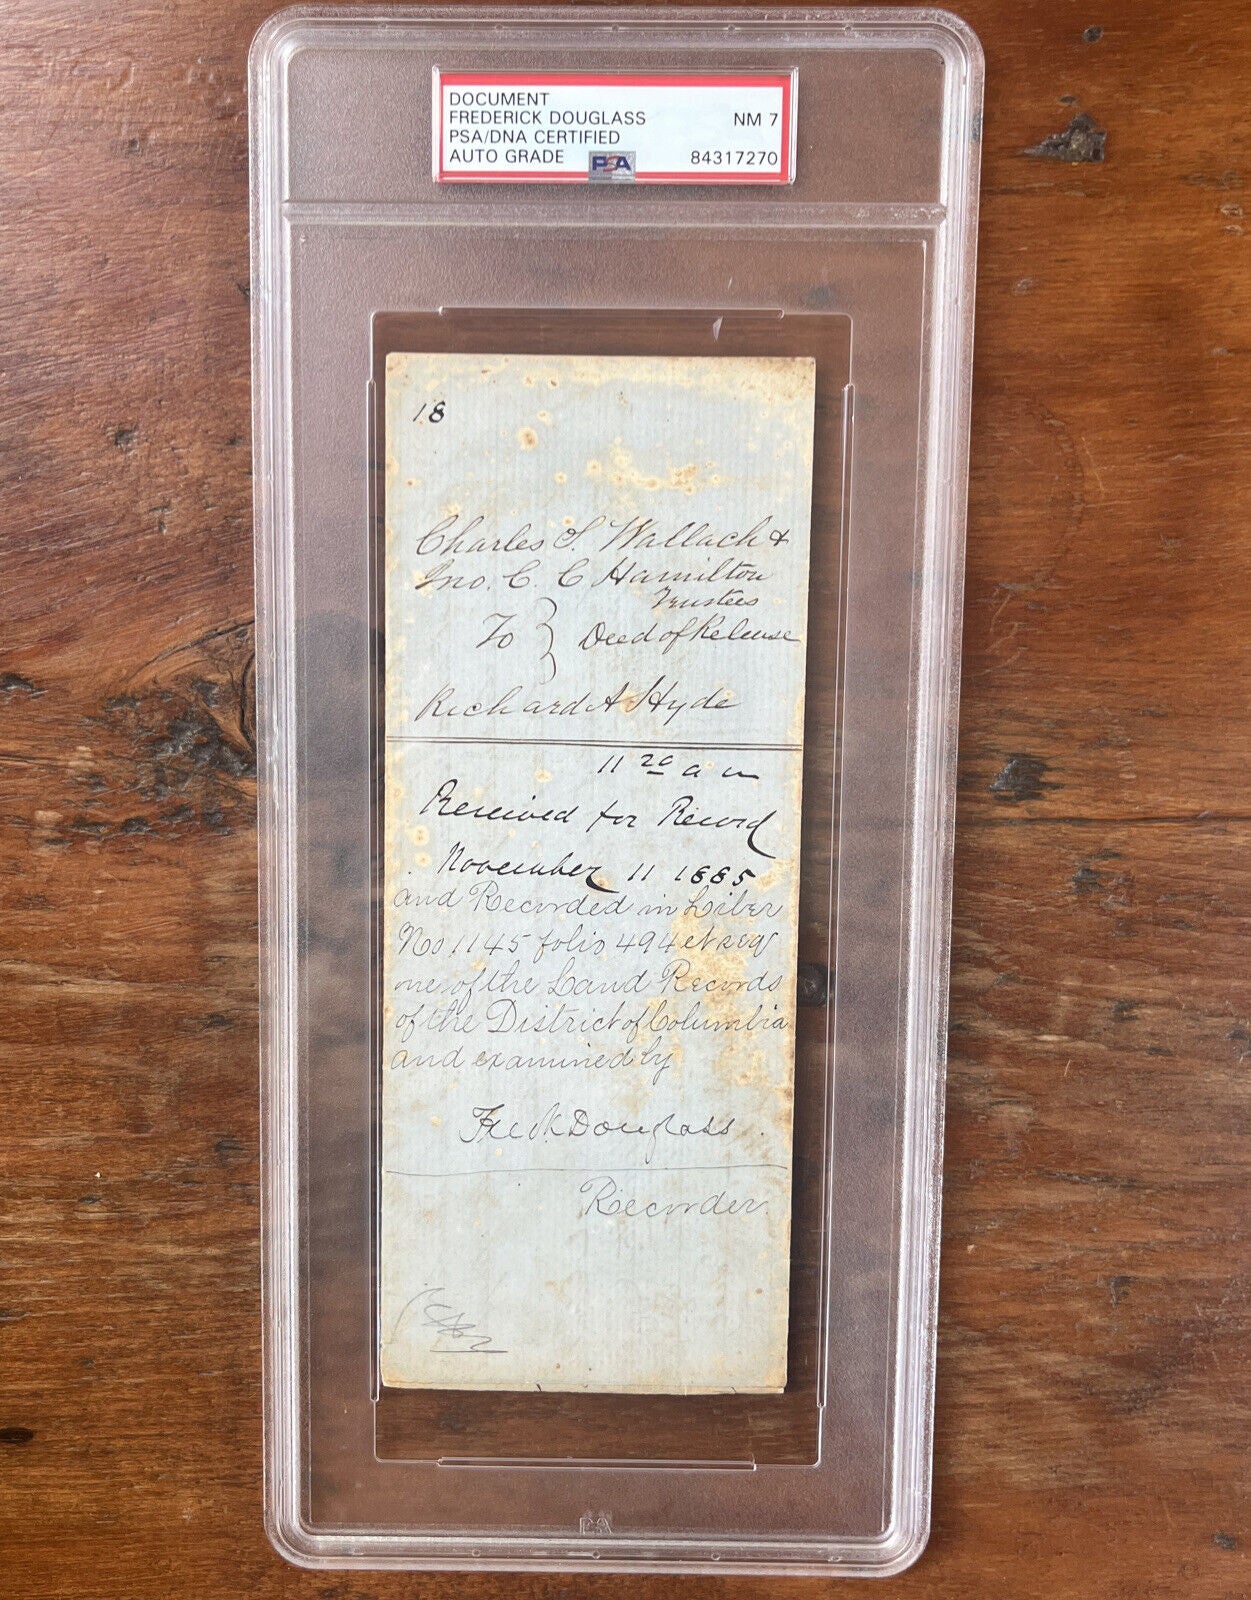 DOCUMENT
FREDERICK DOUGLASS NM 7
PSA/DNA CERTIFIED
AUTO GRADE PSA 84317270
18
Charles S. Wallach &
Jno. C. C Hamilton
Trustees
To } Deed of Release
Richard A Hyde
11 20 a m
Received for Record
November 11 1885
and Recorded in Liber
No 1145 folio 494 et seq
one of the Land Records
of the District of Columbia
and examined by
Fredk Douglass.
Recorder.
PSA